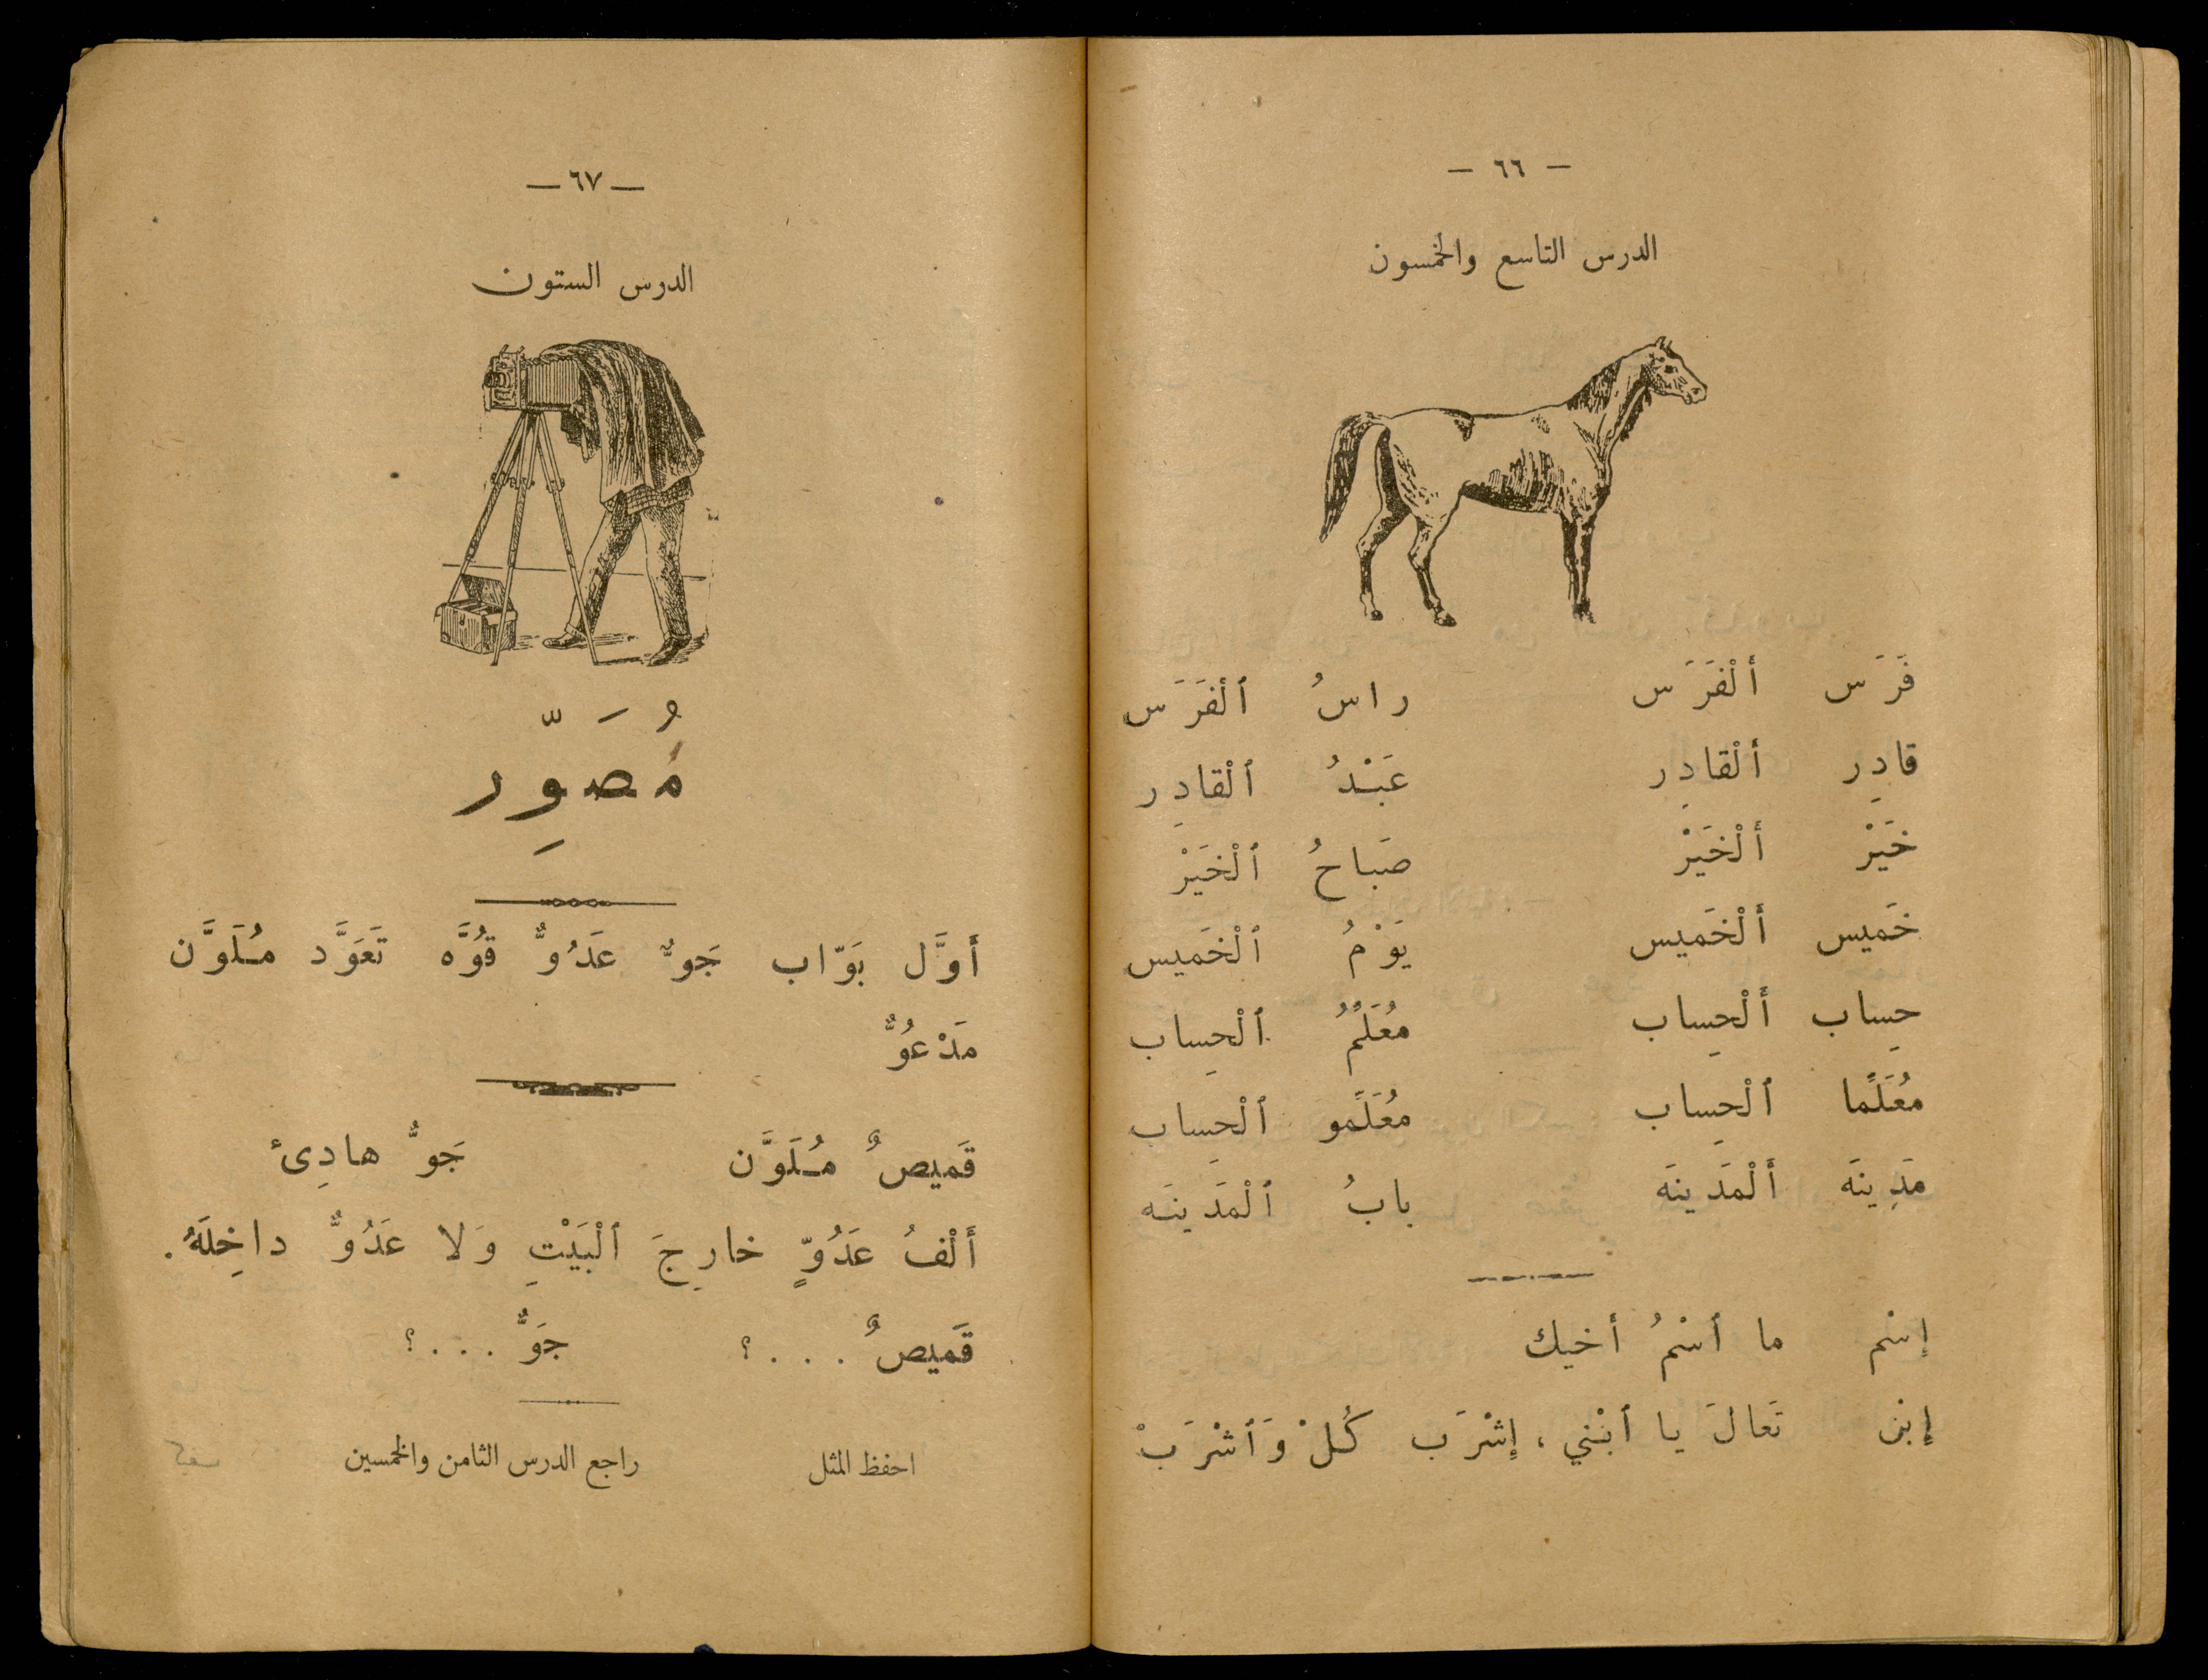 — ٦٦ —
الدرس التاسع والخمسون
فَرَس أَلْفَرَس راسُ ٱلْفَرَس
قادِر أَلْقادِر عَبْدُ ٱلْقادِر
خَيْر أَلْخَيْر صَباحُ ٱلْخَيْر
خَميس أَلْخَميس يَوْمُ ٱلْخَميس
حِساب أَلْحِساب مُعَلِّمُ ٱلْحِساب
مُعَلِّما ٱلْحِساب مُعَلِّمو ٱلْحِساب
مَدِينَه أَلْمَدينَه بابُ ٱلْمَدينَه
إِسْم ما ٱسْمُ أَخيك
إِبْن تَعالَ يا ٱبْني ، إِشْرَب كُلْ وَٱشْرَبْ
— ٦٧ —
الدرس الستون
مُصَوِّر
أَوَّل بَوّاب جَوٌّ عَدُوٌّ قُوَّه تَعَوَّد مُلَوَّن
مَدْعُوٌّ
قَميصٌ مُلَوَّن جَوٌّ هادِئ
أَلْفُ عَدُوٍّ خارِجَ ٱلْبَيْتِ وَلا عَدُوٌّ داخِلَهُ .
قَميصٌ . . . ؟ جَوٌّ . . . ؟
احفظ المثل راجع الدرس الثامن والخمسين